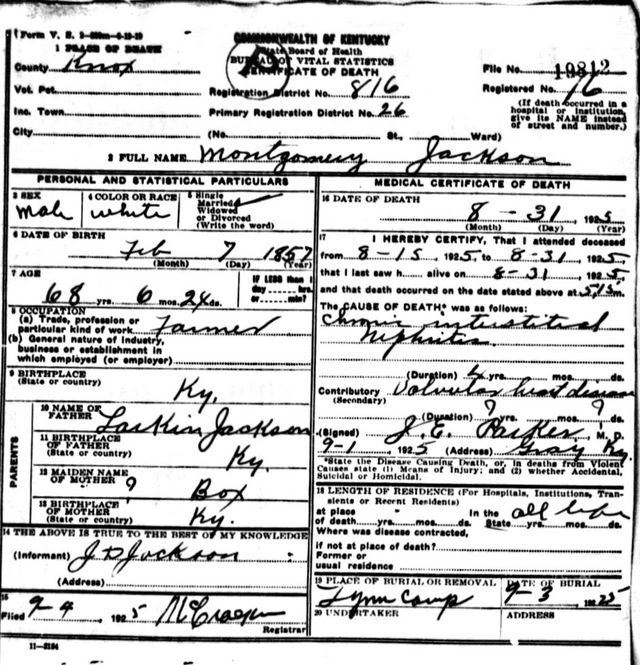 Form V. S.
COMMONWEALTH OF KENTUCKY
State Board of Health
BUREAU OF VITAL STATISTICS
CERTIFICATE OF DEATH
1 PLACE OF DEATH
County Knox
Vot. Pct.
Inc. Town
City
Registration District No. 816
Primary Registration District No. 26
(No. St., Ward)
File No. 19812
Registered No. 16
(If death occurred in a
hospital or institution,
give its NAME instead
of street and number.)
2 FULL NAME Montgomery Jackson
PERSONAL AND STATISTICAL PARTICULARS
3 SEX
Male
4 COLOR OR RACE
white
5 Single
Married
Widowed
or Divorced
(Write the word)
6 DATE OF BIRTH
Feb 7 1857
(Month) (Day) (Year)
7 AGE
68 yrs. 6 mos. 24 ds.
IF LESS than 1
day hrs.
or min?
8 OCCUPATION
(a) Trade, profession or
particular kind of work Farmer
(b) General nature of industry,
business or establishment in
which employed (or employer)
9 BIRTHPLACE
(State or country)
Ky.
PARENTS
10 NAME OF
FATHER Larkin Jackson
11 BIRTHPLACE
OF FATHER
(State or country) Ky
12 MAIDEN NAME
OF MOTHER ? Box
13 BIRTHPLACE
OF MOTHER
(State or country) Ky.
14 THE ABOVE IS TRUE TO THE BEST OF MY KNOWLEDGE
(Informant) J D Jackson
(Address)
15
Filed 9-4, 1925
Registrar
11-3184
MEDICAL CERTIFICATE OF DEATH
16 DATE OF DEATH
8 - 31, 1925
(Month) (Day) (Year)
17 I HEREBY CERTIFY, That I attended deceased
from 8-15, 1925, to 8-31, 1925,
that I last saw h alive on 8-31, 1925,
and that death occurred on the date stated above at m.
The CAUSE OF DEATH* was as follows:
Chronic interstitial
Nephritis
(Duration) yrs. mos. ds.
Contributory Valvular heart disease
(Secondary)
(Duration) ? yrs. mos. ? ds.
(Signed) J. E. Parker, M. D.
9-1, 1925 (Address) Gray Ky.
*State the Disease Causing Death, or, in deaths from Violent
Causes state (1) Means of Injury; and (2) whether Accidental,
Suicidal or Homicidal.
18 LENGTH OF RESIDENCE (For Hospitals, Institutions, Tran-
sients or Recent Residents)
at place In the all life
of death yrs. mos. ds. State yrs. mos. ds.
Where was disease contracted,
if not at place of death?
Former or
usual residence
19 PLACE OF BURIAL OR REMOVAL
Lynn Camp
DATE OF BURIAL
9-3, 1925
20 UNDERTAKER
ADDRESS